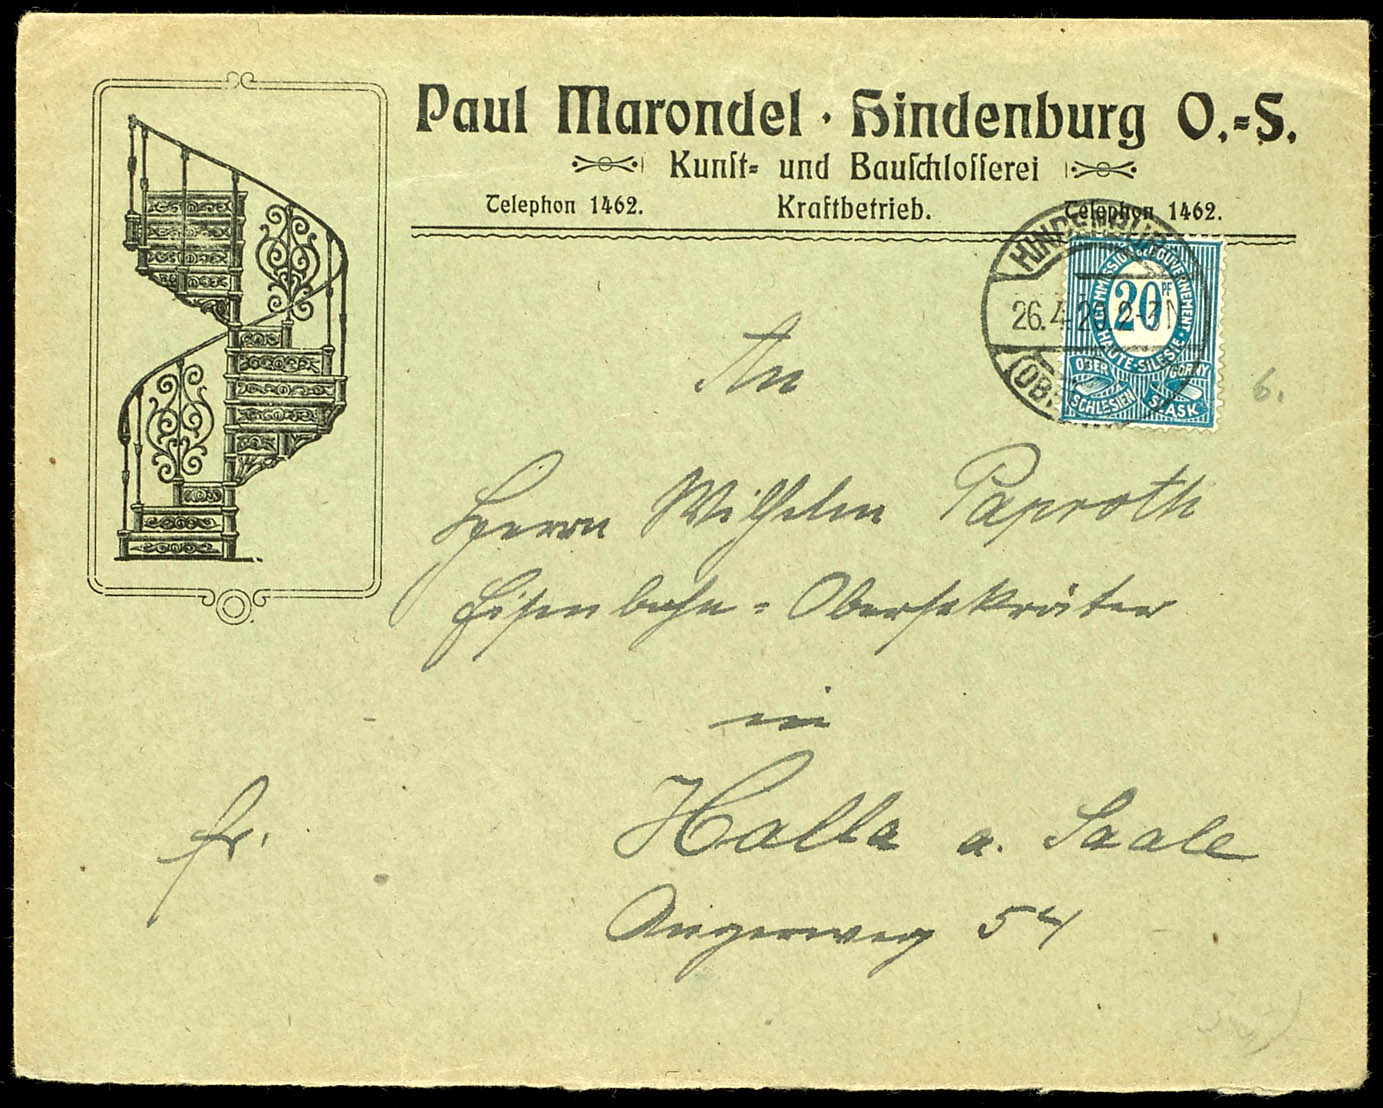 Paul Marondel · Hindenburg O.-S.
Kunst- und Bauschlosserei
Telephon 1462. Kraftbetrieb. Telephon 1462.
HINDENBURG
26.4.20.2-3N
(OB.
COMMISSION DE GOUVERNEMENT
20 PF
HAUTE-SILESIE
OBER SCHLESIEN
GÓRNY ŚLĄSK
6.
An
Herrn Wilhelm Paproth
Eisenbahn-Obersekretär
in
fr.
Halle a. Saale
Angerweg 54